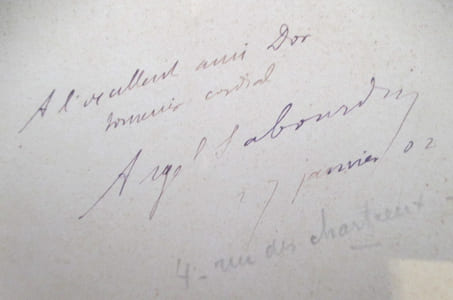 A l'excellent ami Dor
souvenir cordial
Argˡ Sabourdin
27 janvier 02
4 - rue des chartreux -